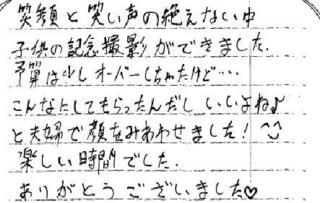 笑顔と笑い声の絶えない中
子供の記念撮影ができました.
予算は少しオーバーしちゃたけど…
こんなにしてもらったんだし いいよね♪
と夫婦で顔をみあわせました! ^^
楽しい時間でした.
ありがとうございました♡